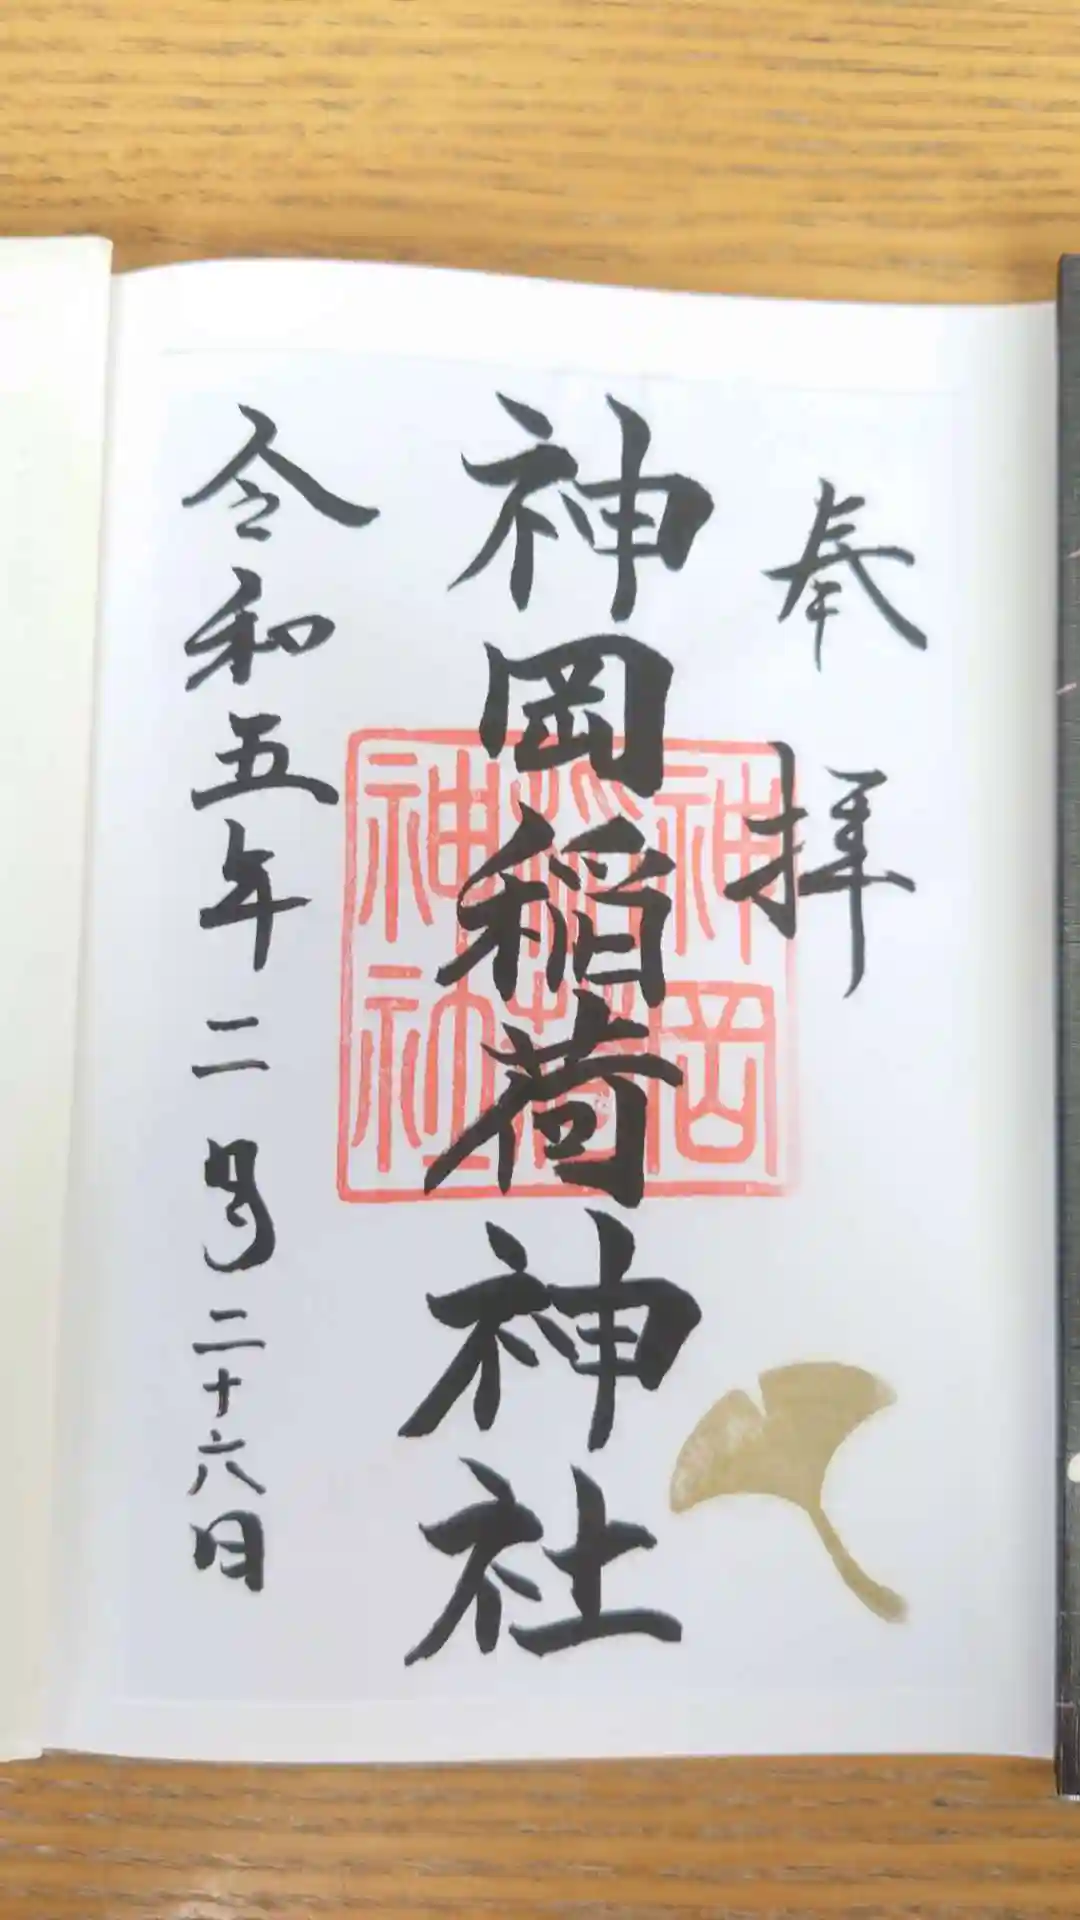 奉拝
神岡稲荷神社
神岡
稲荷
神社
令和五年二月二十六日